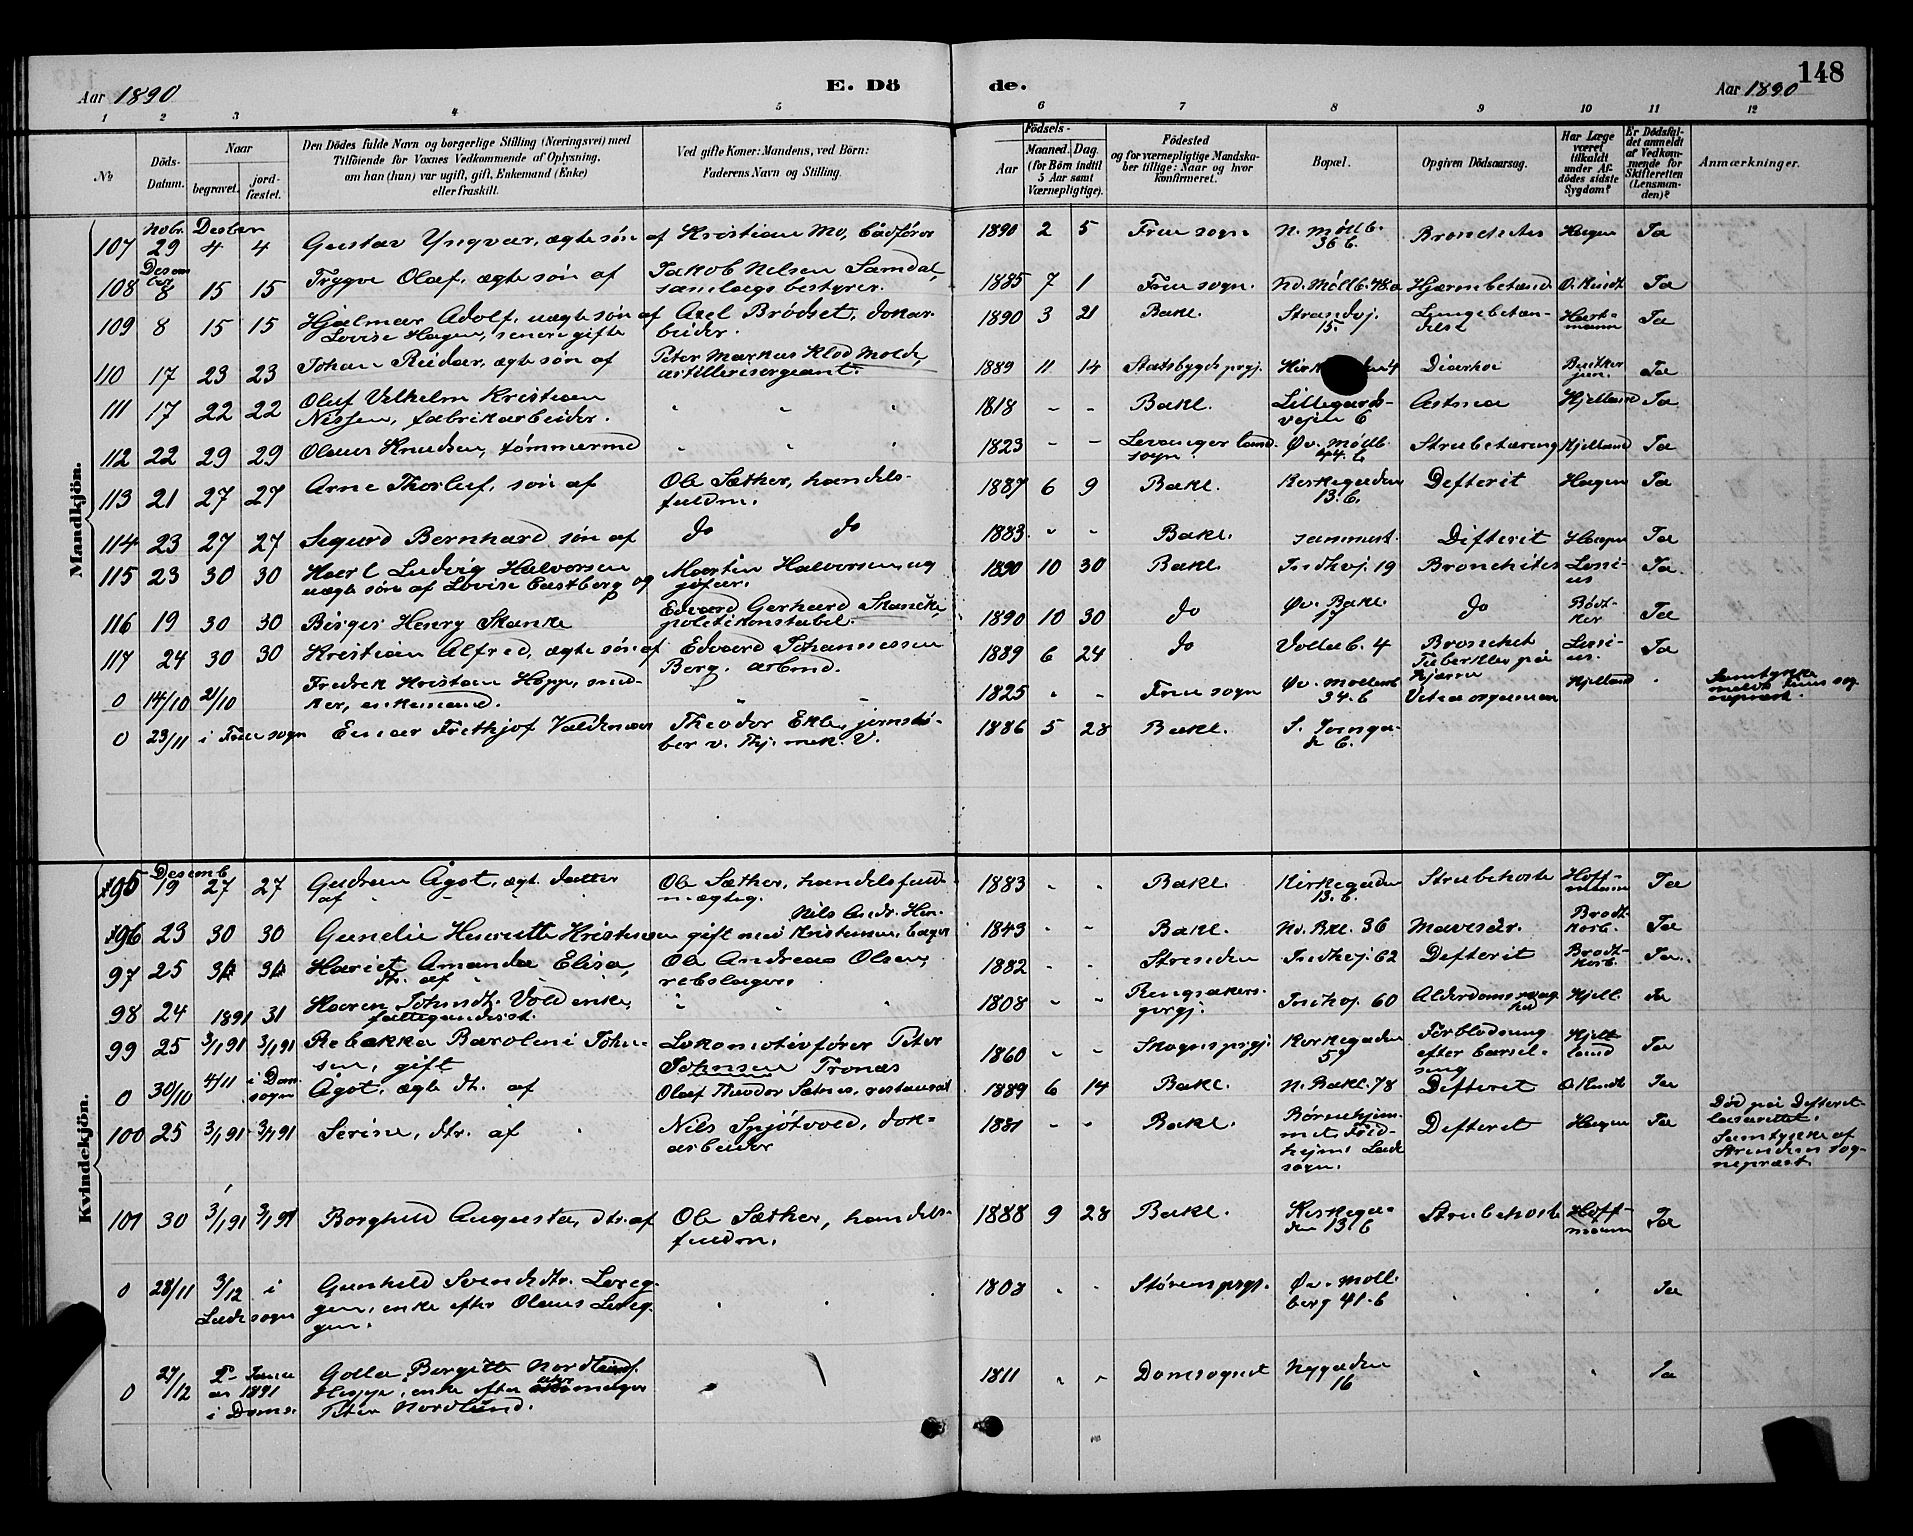 148
Aar 1890
E. Dö
de.
Aar 1890
1 2 3 4 5 6 7 8 9 10 11 12
No
Döds-Datum.
Naar
begravet.
jord-fæstet.
Den Dödes fulde Navn og borgerlige Stilling (Næringsvei) med
Tilföiende for Voxnes Vedkommende af Oplysning,
om han (hun) var ugift, gift, Enkemand (Enke)
eller fraskilt.
Ved gifte Koner: Mandens, ved Börn:
Faderens Navn og Stilling.
Födsels-
Aar
Maaned. Dag.
(for Börn indtil
5 Aar samt
Værnepligtige).
Födested
og for værnepligtige Mandska-
ber tillige: Naar og hvor
konfirmeret.
Bopæl.
Opgiven Dödsaarsag.
Har Læge
været
tilkaldt
under Af-
dödes sidste
Sygdom?
Er Dödsfal-
det anmeldt
af Vedkom-
mende for
Skifteretten
(Lensman-
den)?
Anmærkninger.
Mandkjön.
Nobr. Desbr
107 29 4 4 Gustav Yngvar, ægte søn af Kristian Mo, 1890 2 5 Frue sogn N. Møllb. 36 b. Bronchites Hagen Ja
Desember
108 8 15 15 Trygve Olaf, ægte søn af Jakob Nelsen Samdal, samlagsbestyrer. 1885 7 1 Frue sogn. Nd. Møllb. 48a Hjærnebetænd. Ja
109 8 15 15 Hjalmar Adolf, uægte søn af Axel Brødset, dokar-
Lovise Hagen, senere gifte beider. 1890 3 21 Bakl. Strandvj. 15. Lungebetæn-delse Hart-mann Ja
110 17 23 23 Johan Reidar, ægte søn af Peter Markus Klod Molde, artillerisergeant. 1889 11 14 Stadsbygds prgj. Diarhoe Ja
111 17 22 22 Oluf Vilhelm Kristian
Nissen, fabrikarbeider. " " " 1818 - - Bakl. Lillegards-vejte 6 Astma Hjelland Ja
112 22 29 29 Olaus Knudsen, tømmermd " " " 1823 - - Levanger land-sogn. Øv. Møllb. 44. b Strubetæring Hjelland Ja
113 21 27 27 Arne Thorleif, søn af Ole Sæther, handels-fuldm. 1887 6 9 Bakl. Kirkegaden 13. b. Defterit Hagen Ja
114 23 27 27 Sigurd Bernhard søn af do do 1883 - - Bakl. sammest. Difterit Hagen Ja
115 23 30 30 Karl Ludvig Halvorsen
uægte søn af Lovise Eastberg og Martin Halvorsen 1890 10 30 Bakl. Indhvj. 19 Bronchites Lossi-us Ja.
116 19 30 30 Birger Henry Skanke Edvard Gerhard Skancke, politikonstabel. 1890 10 30 do Øv. Bakl. 17 do Bødt-ker Ja
117 24 30 30 Kristian Alfred, ægte søn af Edvard Johannessen
Berg. arbmd. 1889 6 24 do Volla b. 4 Bronchet
Tuberkler på
hjærnen Lossi-us. Ja
0 14/10 21/10 Fredrik Kristian Hopp, sned-
ker, enkemand. " 1825 - - Frue sogn Øv. Mollenb 34. b Hjelland Samtykke
0 23/11 i Frue sogn Einar Frithjof Valdemar Theodor Ekle, jernstø-
ber v. Thj. mek. V. 1886 5 28 Bakl.
Kvindekjön.
Desemb
95 19 27 27 Gudrun Agot, ægt. datter
af " " Ole Sæther, handelsfuld-
mægtig. 1883 - - Bakl. Kirkegaden 13. b. Strubehoste Hoff-mann Ja
96 23 30 30 Gunelie Henrette Kristensen gift med Nils Andr. 1843 - - Bakl. Nd. Bkl. 36 Mavesår. Ja
97 25 Hariet Amanda Elisa,
dtr. af " Ole Andreas Olsen,
rebslager. 1882 - - Strinden Indhvj. 62 Defterit Ja.
98 24 1891 31 Karen Johnsdtr. Vold enke,
fattigunderst. " " 1808 - - Ringsakers-
prgj. Indhvj. 60 Hjell. Ja
99 25 3/1 91 3/1 91 Rebekka Barolini John-
sen, gift Lokomotivfører Peter
Johnsen Tronæs 1860 - - Skogns prgj. Kirkegaden 59 Forblødning
efter barsel-
seng Hjel-land Ja
0 30/10 4/11 i Dom-sogn Agot, ægte dtr. af Olaf Theodor 1889 6 14 Bakl. N. Bakl. 78 Defteret Ja
100 25 3/1 91 3/1 91 Serine, dtr. af " Nils Spjøtvold, dok-
arbeider 1881 - - Bakl. Børnehjem-
met Frid-
hejm Lade
sogn. Defteret Hagen Ja Død på Defteret
lasarettet.
Samtykke af
Strindens sog-
neprest.
101 30 3/1 91 3/1 91 Borghild Augusta, dtr. af Ole Sæther, handels-
fuldm. 1888 9 28 Bakl. Kirkega-
den 13. b Strubehoste Hoff-mann Ja
0 28/11 3/12 i
Lade sogn Gunhild Svendsdtr. Loreg-
gen, enke efter Olaus Loreg-
gen. " " 1803 - - Støren prgj. Øv. Moll.
berg 41. b " " " Ja
0 27/12 2- Janu
ar 1891
i Doms.
Peter Nordlund. 1811 - - Domsognet Nygaden 16 " " Ja